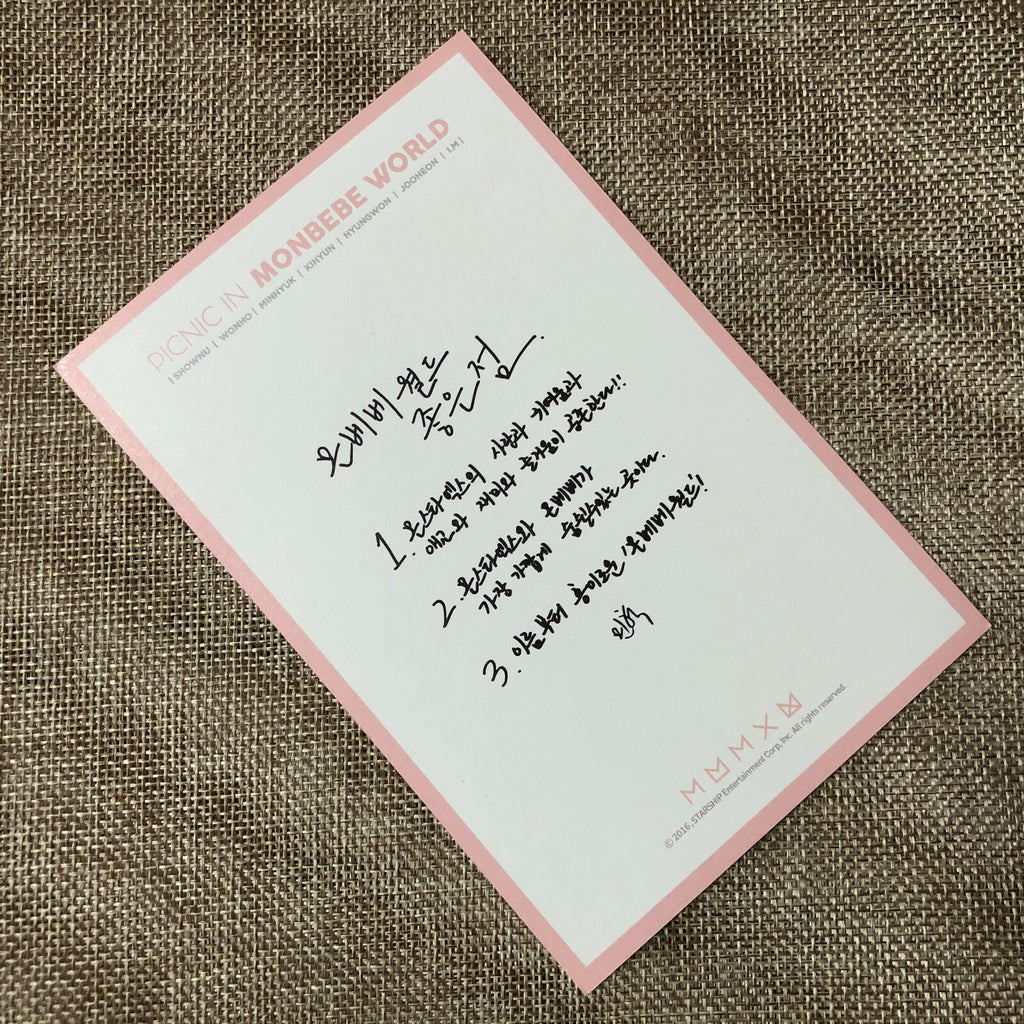 PICNIC IN MONBEBE WORLD
| SHOWNU | WONHO | MINHYUK | KIHYUN | HYUNGWON | JOOHEON | I.M |
몬베베 월드
좋은 점.
1. 몬스타엑스의 사랑과 귀여움과
애교와 재미와 즐거움이 공존한다!!
2. 몬스타엑스와 몬베베가
가장 가깝게 숨쉴수있는 곳이다.
3. 이름부터 흥미로운 '몬베베월드'!
민혁
© 2016, STARSHIP Entertainment Corp, Inc. All rights reserved.